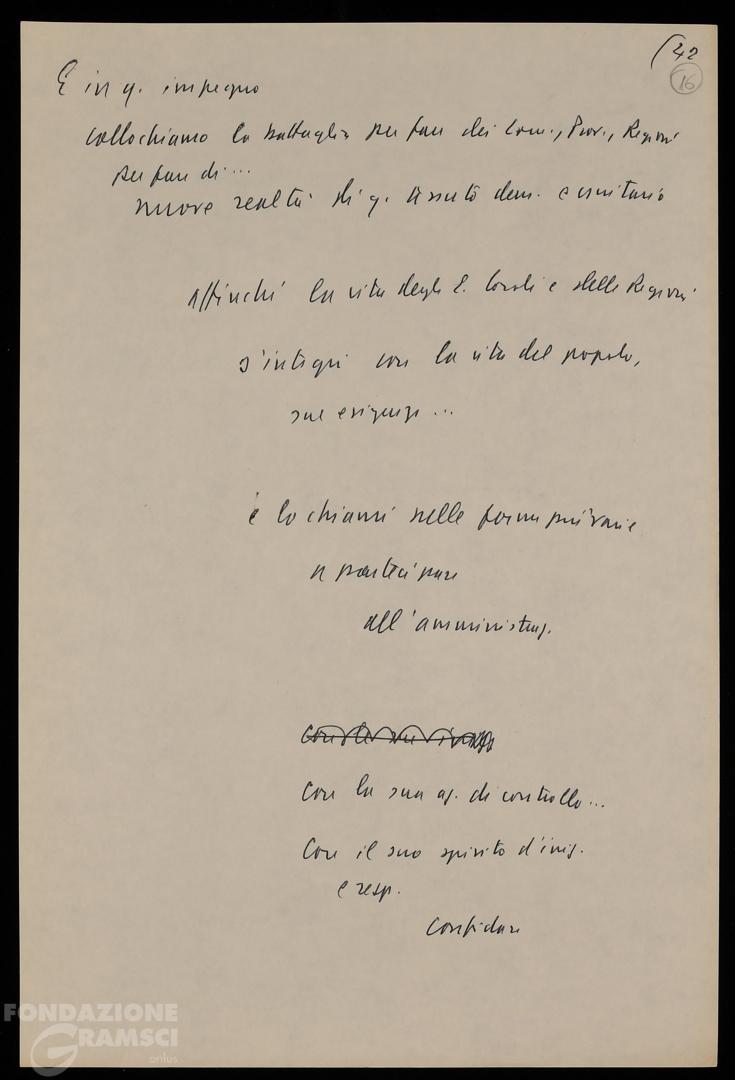 (42
16
E in q. impegno
collochiamo la battaglia per fare dei Com., Prov., Regioni
per fare di ...
nuove realtà di q. tessuto dem. e unitario
affinchè la vita degli E. locali e delle Regioni
s'integri con la vita del popolo,
sue esigenze ...
e lo chiami nelle forme più varie
a partecipare
all'amministraz.
Con la sua az. di controllo ...
Con il suo spirito d'iniz.
e resp.
Confidare
FONDAZIONE
GRAMSCI
onlus